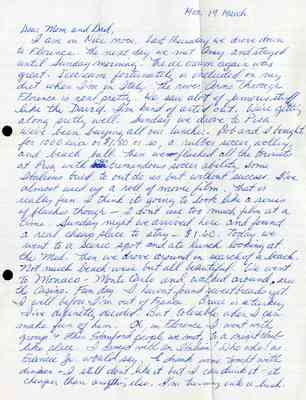 Mon. 19 March
Dear Mom and Dad,
I am in Nice now. Last Thursday we drove down
to Florence. The next day we met Amy and stayed
until Sunday morning. The ice cream again was
great. Ice cream fortunately is included on my
diet when I'm in Italy. The river Arno through
Florence is real pretty, has alot of
like the Things are getting
along pretty well. Sunday we drove to Pisa
We've been buying all our lunches. Bob and I bought
for 1000 lira or $1.80 or so, a rubber soccer, volley,
and beach ball. Then we all the tourists
at Pisa with tremendous ability. Some
Italians tried to out do us but without success. I've
almost used up a roll of movie film. That is
really fun. I think it's going to look like a series
of flashes though - I don't use too much film at a
time. Sunday night we arrived here and found
a real cheap place to stay - $1.50. Today we
went to a scenic spot and ate lunch looking at
the Med. Then we drove around in search of a beach.
Not much beach here but all beautiful. We went
to Monaco - Monte Carlo and walked around, saw
the Casino. Fun day. I haven't found sweetbreads yet.
I will before I'm out of France. Bruce is a turkey
I've definitely decided. But tolerable when I can
make fun of him. Oh, in Florence I went with
group & other Stanford people we met, to a nightclub
like place. I tangoed with an Italian, like who? as
Francis Jr. would say. I drank wine tonight with
dinner - I still don't like it but I can drink it - it
cheaper than anything else. I'm turning into a lush.